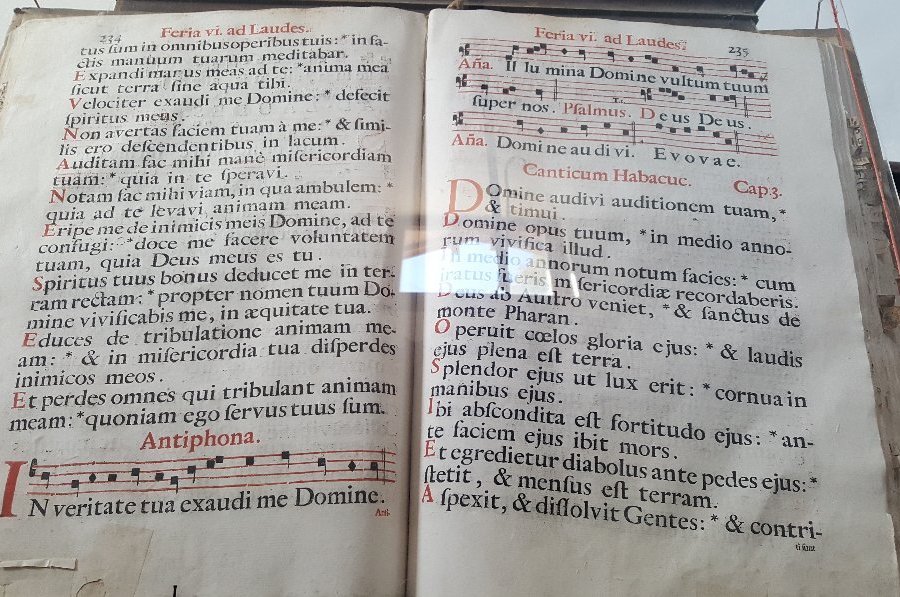 234
Feria vi. ad Laudes.
tus ſum in omnibus operibus tuis: * in fa-
ctis manuum tuarum meditabar.
Expandi manus meas ad te: * anima mea
ſicut terra ſine aqua tibi.
Velociter exaudi me Domine: * defecit
ſpiritus meus.
Non avertas faciem tuam à me: * & ſimi-
lis ero deſcendentibus in lacum.
Auditam fac mihi manè miſericordiam
tuam: * quia in te ſperavi.
Notam fac mihi viam, in qua ambulem: *
quia ad te levavi animam meam.
Eripe me de inimicis meis Domine, ad te
confugi: * doce me facere voluntatem
tuam, quia Deus meus es tu.
Spiritus tuus bonus deducet me in ter-
ram rectam: * propter nomen tuum Do-
mine vivificabis me, in æquitate tua.
Educes de tribulatione animam me-
am: * & in miſericordia tua diſperdes
inimicos meos.
Et perdes omnes qui tribulant animam
meam: * quoniam ego ſervus tuus ſum.
Antiphona.
IN veritate tua exaudi me Domine.
Añt.
Feria vi. ad Laudes.
235
Aña. Il lu mina Domine vultum tuum
ſuper nos. Pſalmus. Deus Deus.
Aña. Domi ne au di vi. Evovae.
Canticum Habacuc. Cap 3.
DOmine audivi auditionem tuam, *
& timui.
Domine opus tuum, * in medio anno-
rum vivifica illud.
In medio annorum notum facies: * cum
iratus fueris, miſericordiæ recordaberis.
Deus ab Auſtro veniet, * & ſanctus de
monte Pharan.
Operuit cœlos gloria ejus: * & laudis
ejus plena eſt terra.
Splendor ejus ut lux erit: * cornua in
manibus ejus.
Ibi abſcondita eſt fortitudo ejus: * an-
te faciem ejus ibit mors.
Et egredietur diabolus ante pedes ejus: *
ſtetit, & menſus eſt terram.
Aſpexit, & diſſolvit Gentes: * & contri-
ti ſunt